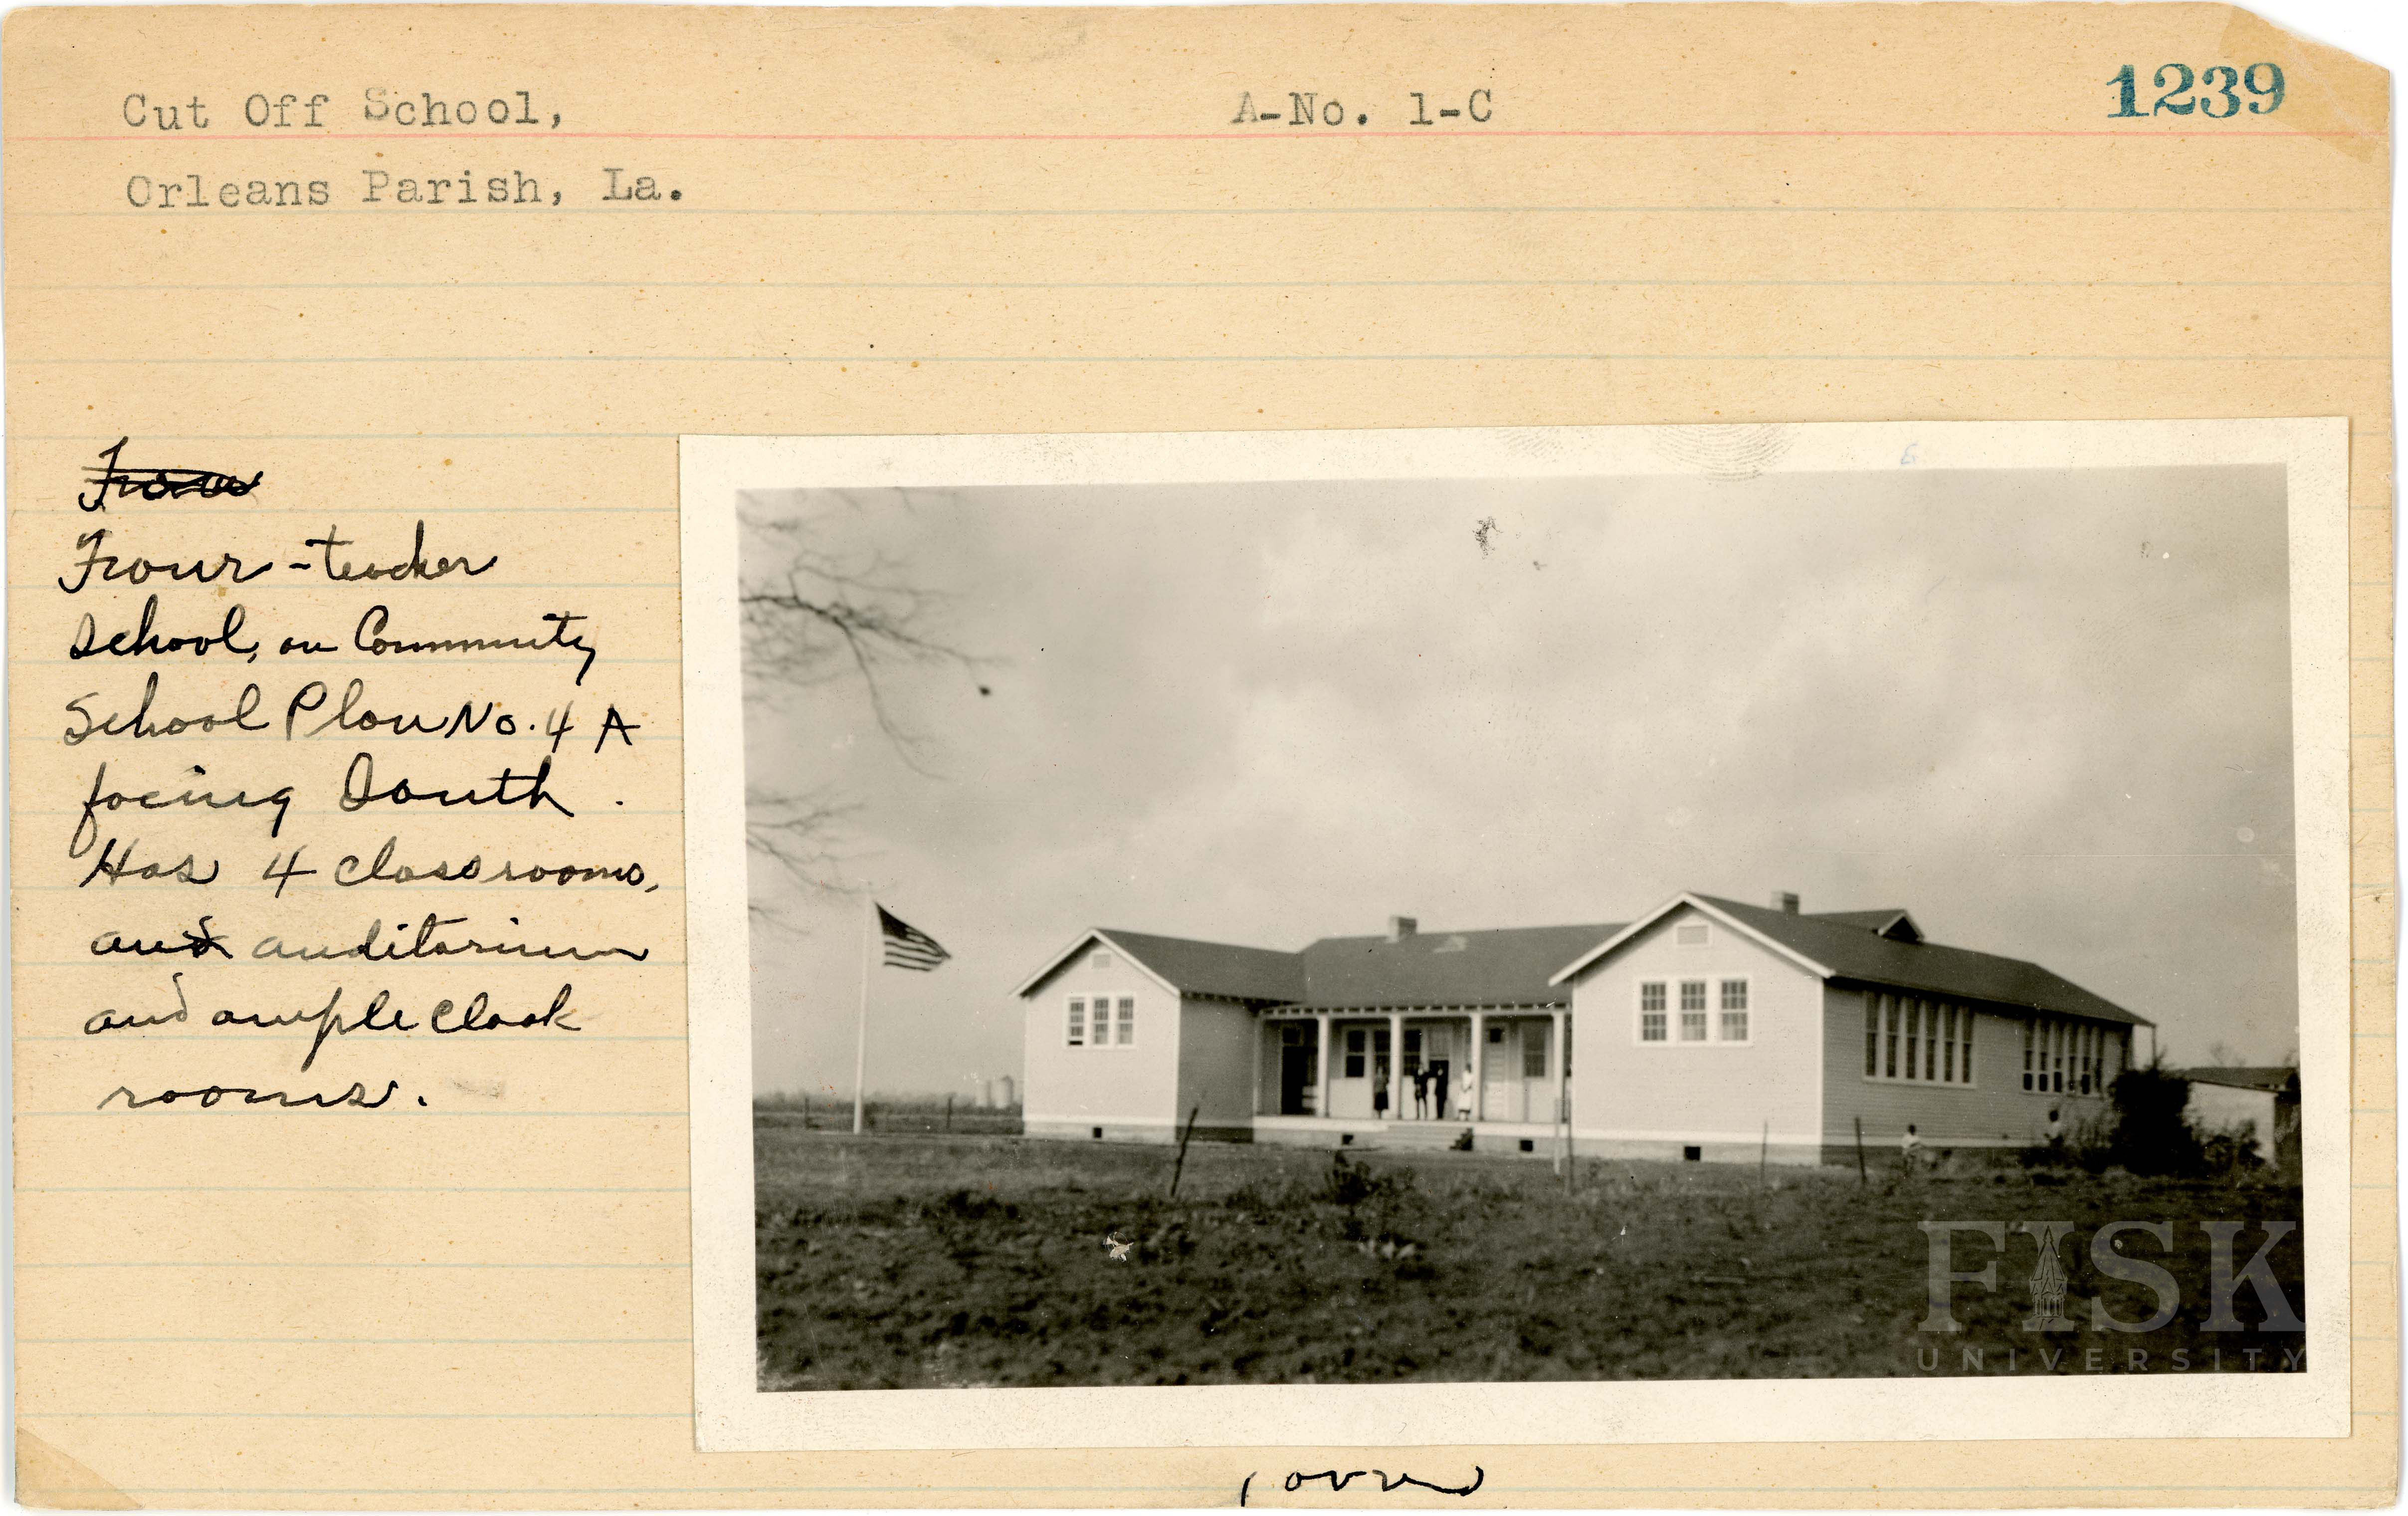 Cut Off School, A-No. 1-C 1239
Orleans Parish, La.
Four-teacher
School, on Community
School Plan No. 4 A
facing South.
Has 4 classrooms,
and auditorium
and ample cloak
rooms.
FISK
UNIVERSITY
(over)